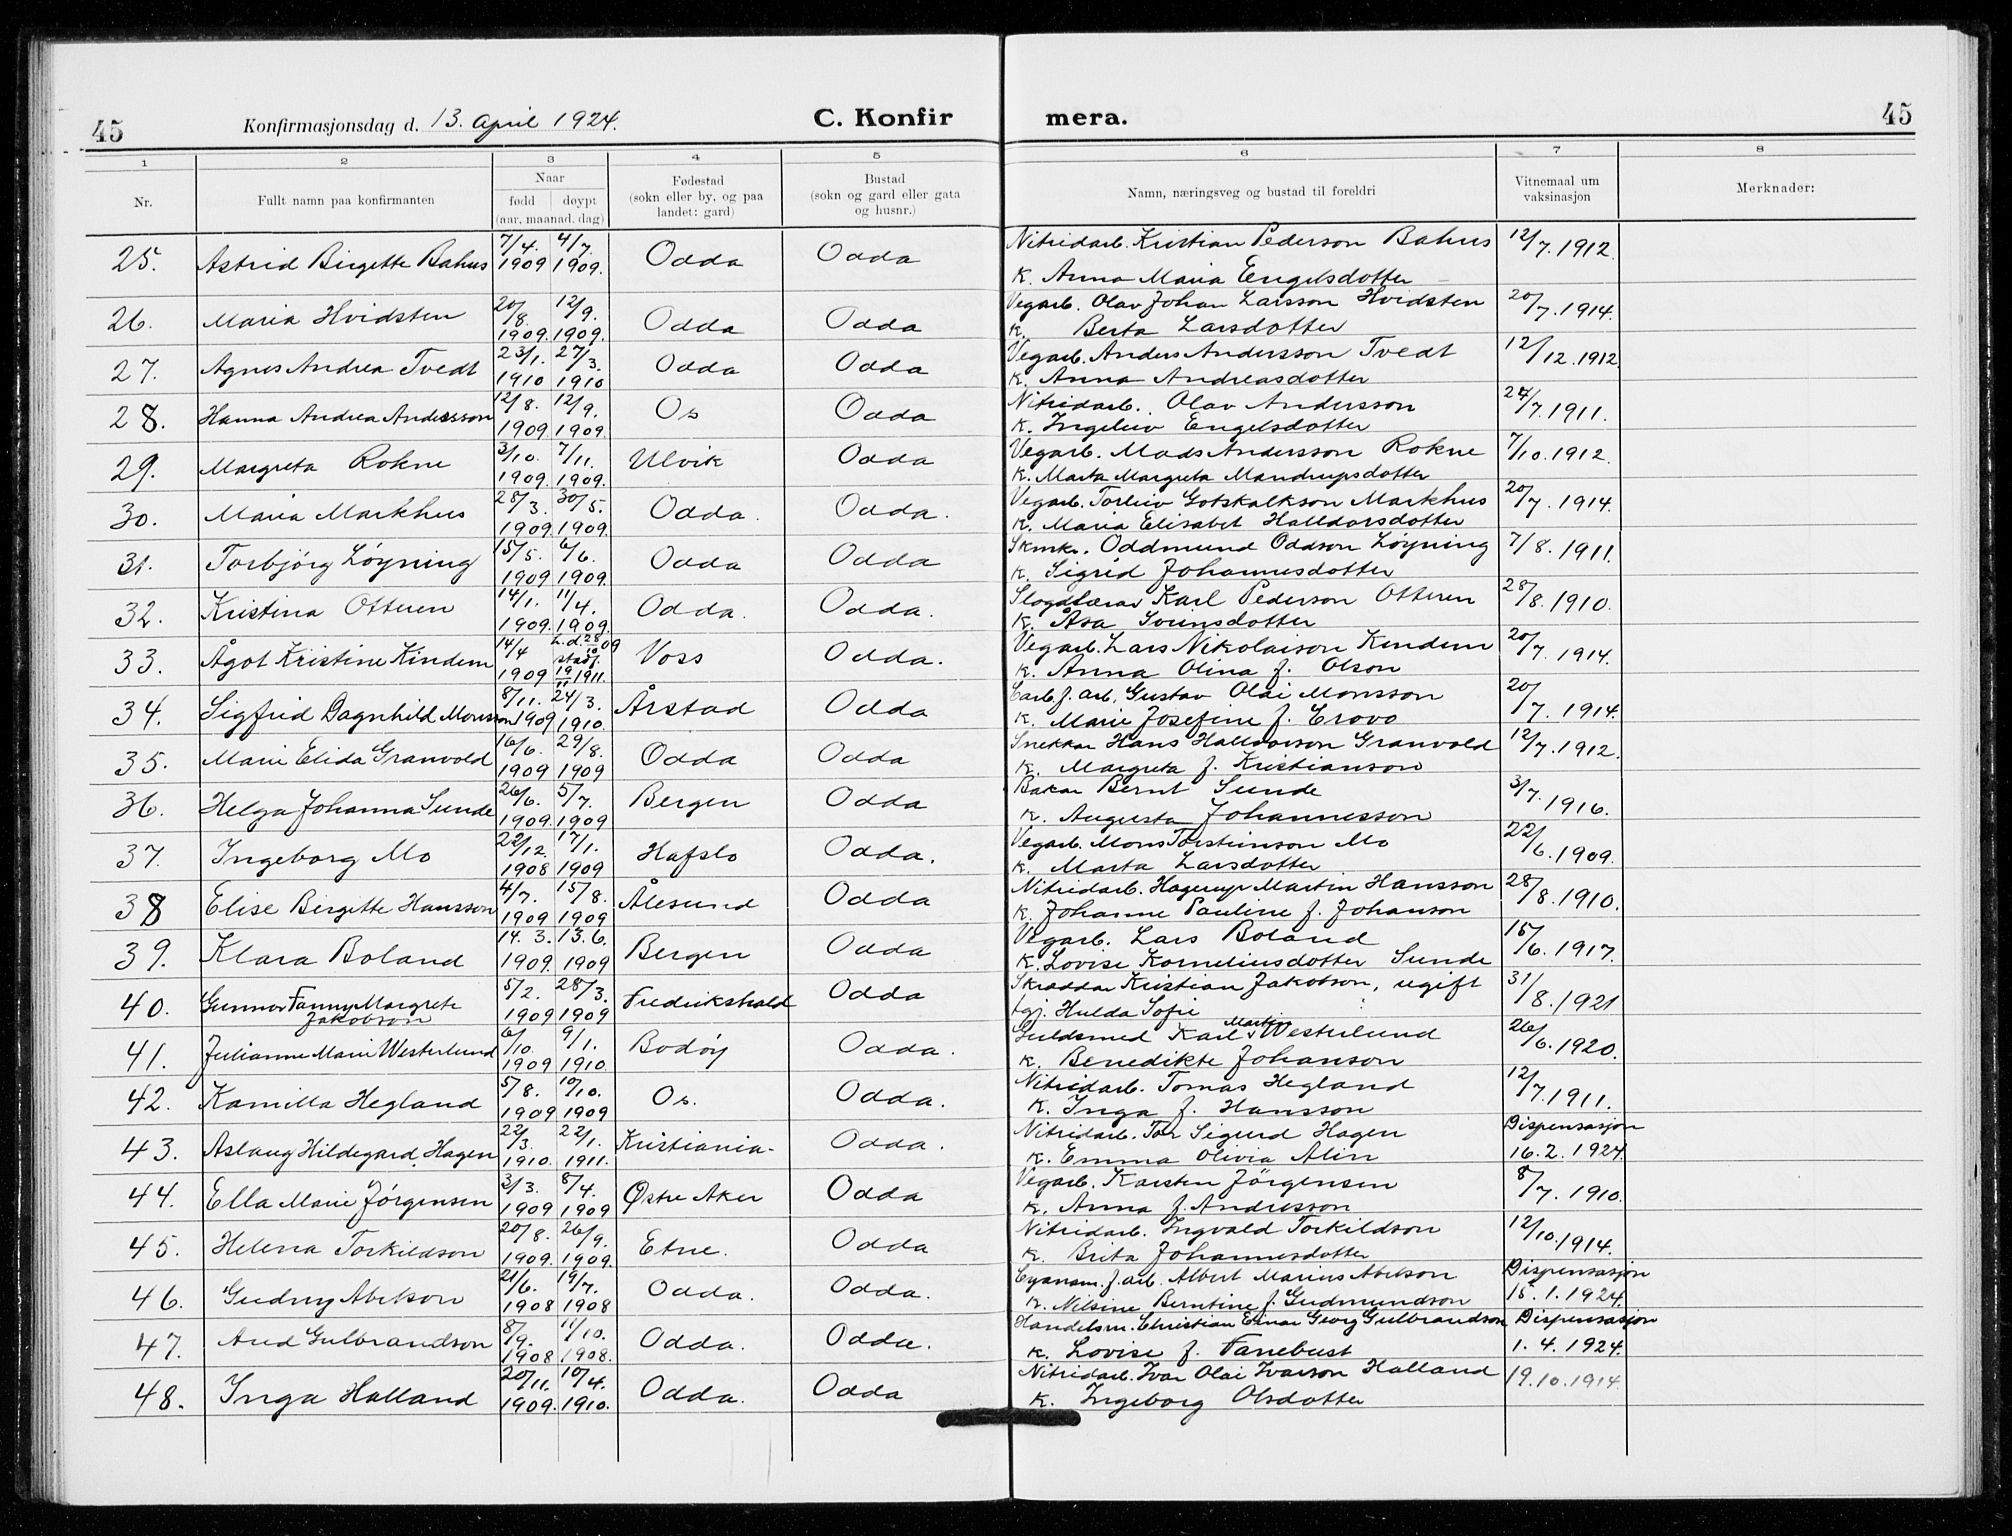 45 Konfirmasjonsdag d. 13. april 1924. C. Konfirmera. 45
1 2 3 4 5 6 7 8
Nr. Fullt namn paa konfirmanten Naar fødd døypt (aar, maanad. dag) Fødestad (sokn eller by, og paa landet: gard) Bustad (sokn og gard eller gata og husnr.) Namn, næringsveg og bustad til foreldri Vitnemaal um vaksinasjon Merknader:
25. Astrid Birgette Bahus 7/4. 1909 4/7. 1909. Odda Odda Nitridarb. Kristian Pederson Bahus 12/7. 1912.
k. Anna Maria Engelsdotter
26. Maria Hvidsten 20/8. 1909. 12/9. 1909. Odda Odda Vegarb. Olav Johan Larsson Hvidsten 20/7. 1914.
k. Berta Larsdotter
27. Agnes Andrea Tvedt 23/1. 1910 27/3. 1910 Odda Odda Vegarb. Anders Andersson Tvedt 12/12. 1912
k. Anna Andreasdotter
28. Hanna Andrea Andersson 12/8. 1909. 12/9. 1909. Os Odda Nitridarb. Olav Andersson 24/7. 1911.
k. Ingeleiv Engelsdotter
29. Margreta Rokne 3/10. 1909. 7/11. 1909. Ulvik Odda Vegarb. Mads Andersson Rokne 7/10. 1912.
k. Marta Margreta Mandrupsdotter
30. Maria Markhus 28/3. 1909. 30/5. 1909. Odda. Odda. Vegarb. Torleiv Gotskalkson Markhus 20/7. 1914.
k. Maria Elisabet Halldorsdotter
31. Torbjörg Löyning 15/5. 1909 6/6. 1909. Odda Odda Skmk. Oddmund Oddson Löyning 7/8. 1911.
k. Sigrid Johannesdotter
32. Kristina Otteren 14/1. 1909. 11/4. 1909. Odda. Odda. Slogdlærar Karl Pederson Otteren 28/8. 1910.
k. Åsa Sveinsdotter
33. Ågot Kristine Kindem 14/4 1909 h.d. 28/10 09 stadf. 19/11 1911. Voss Odda. Vegarb. Lars Nikolaison Kindem 20/7. 1914.
k. Anna Olina f. Olson
34. Sigfrid Dagnhild Monsson 8/11. 1909 24/3. 1910. Årstad Odda Carb. f. arb. Gustav Olai Monsson 20/7. 1914.
k. Marie Josefine f. Erovo
35. Marie Elida Granvold 16/6. 1909 29/8. 1909 Odda Odda Snekkar Hans Halldorson Granvold 12/7. 1912.
k. Margreta f. Kristianson
36. Helga Johanna Sunde 26/6. 1909. 5/7. 1909 Bergen Odda Bakar Bernt Sunde 3/7. 1916.
k. Augusta Johannesson
37. Ingeborg Mo 22/12. 1908 17/1. 1909 Hafslo Odda. Vegarb. Mons Torsteinson Mo 22/6. 1909.
k. Marta Larsdotter
38 Elise Birgitte Hansson 4/7. 1909 15/8. 1909 Ålesund Odda Nitridarb. Hagerup Martin Hansson 28/8. 1910.
k. Johanne Pauline f. Johanson
39. Klara Boland 14. 3. 1909. 13. 6. 1909 Bergen Odda Vegarb. Lars Boland 15/6. 1917.
k. Lovise Korneliusdotter Sunde
40. Gunnor Fanny Margrete Jakobson 5/2. 1909 28/3. 1909 Fredrikshald Odda Skræddar Kristian Jakobson, ugift 31/8. 1921
tgj. Hulda Sofie
41. Julianne Marie Westerlund 6/10. 1909 9/1. 1910 Bodöy Odda. Guldsmed Karl Martin Westerlund 26/6. 1920.
k. Benedikte Johanson
42. Kamilla Hegland 5/8. 1909 10/10. 1909 Os. Odda. Nitridarb. Tomas Hegland 12/7. 1911.
k. Inga f. Hansson
43. Aslaug Hildegard Hagen 22/3. 1910. 22/1. 1911. Kristiania. Odda. Nitridarb. Tor Sigurd Hagen Dispensasjon
k. Emma Olivia Alin 16. 2. 1924.
44. Ella Marie Jörgensen 3/3. 1909 8/4. 1909 Østre Aker Odda Vegarb. Karsten Jörgensen 8/7. 1910.
k. Anna f. Andresson
45. Helena Torkildson 20/8. 1909. 26/9. 1909. Etne. Odda Nitridarb. Ingvald Torkildson 12/10. 1914.
k. Brita Johannesdotter
46. Gudny Abelson 21/6. 1908 19/7. 1908 Odda. Odda. Cyanam. f. arb. Albert Marius Abelson Dispensasjon
k. Nilsine Berntine f. Gudmundson 15. 1. 1924.
47. Aud Gulbrandson 8/9. 1908 11/10. 1908. Odda. Odda. Handelsm. Christian Einar Georg Gulbrandson Dispensasjon
k. Lovise f. Fanebust 1. 4. 1924.
48. Inga Halland 20/11. 1909. 10/4. 1910. Odda. Odda Nitridarb. Ivar Olai Ivarson Halland 19. 10. 1914.
k. Ingeborg Olsdotter